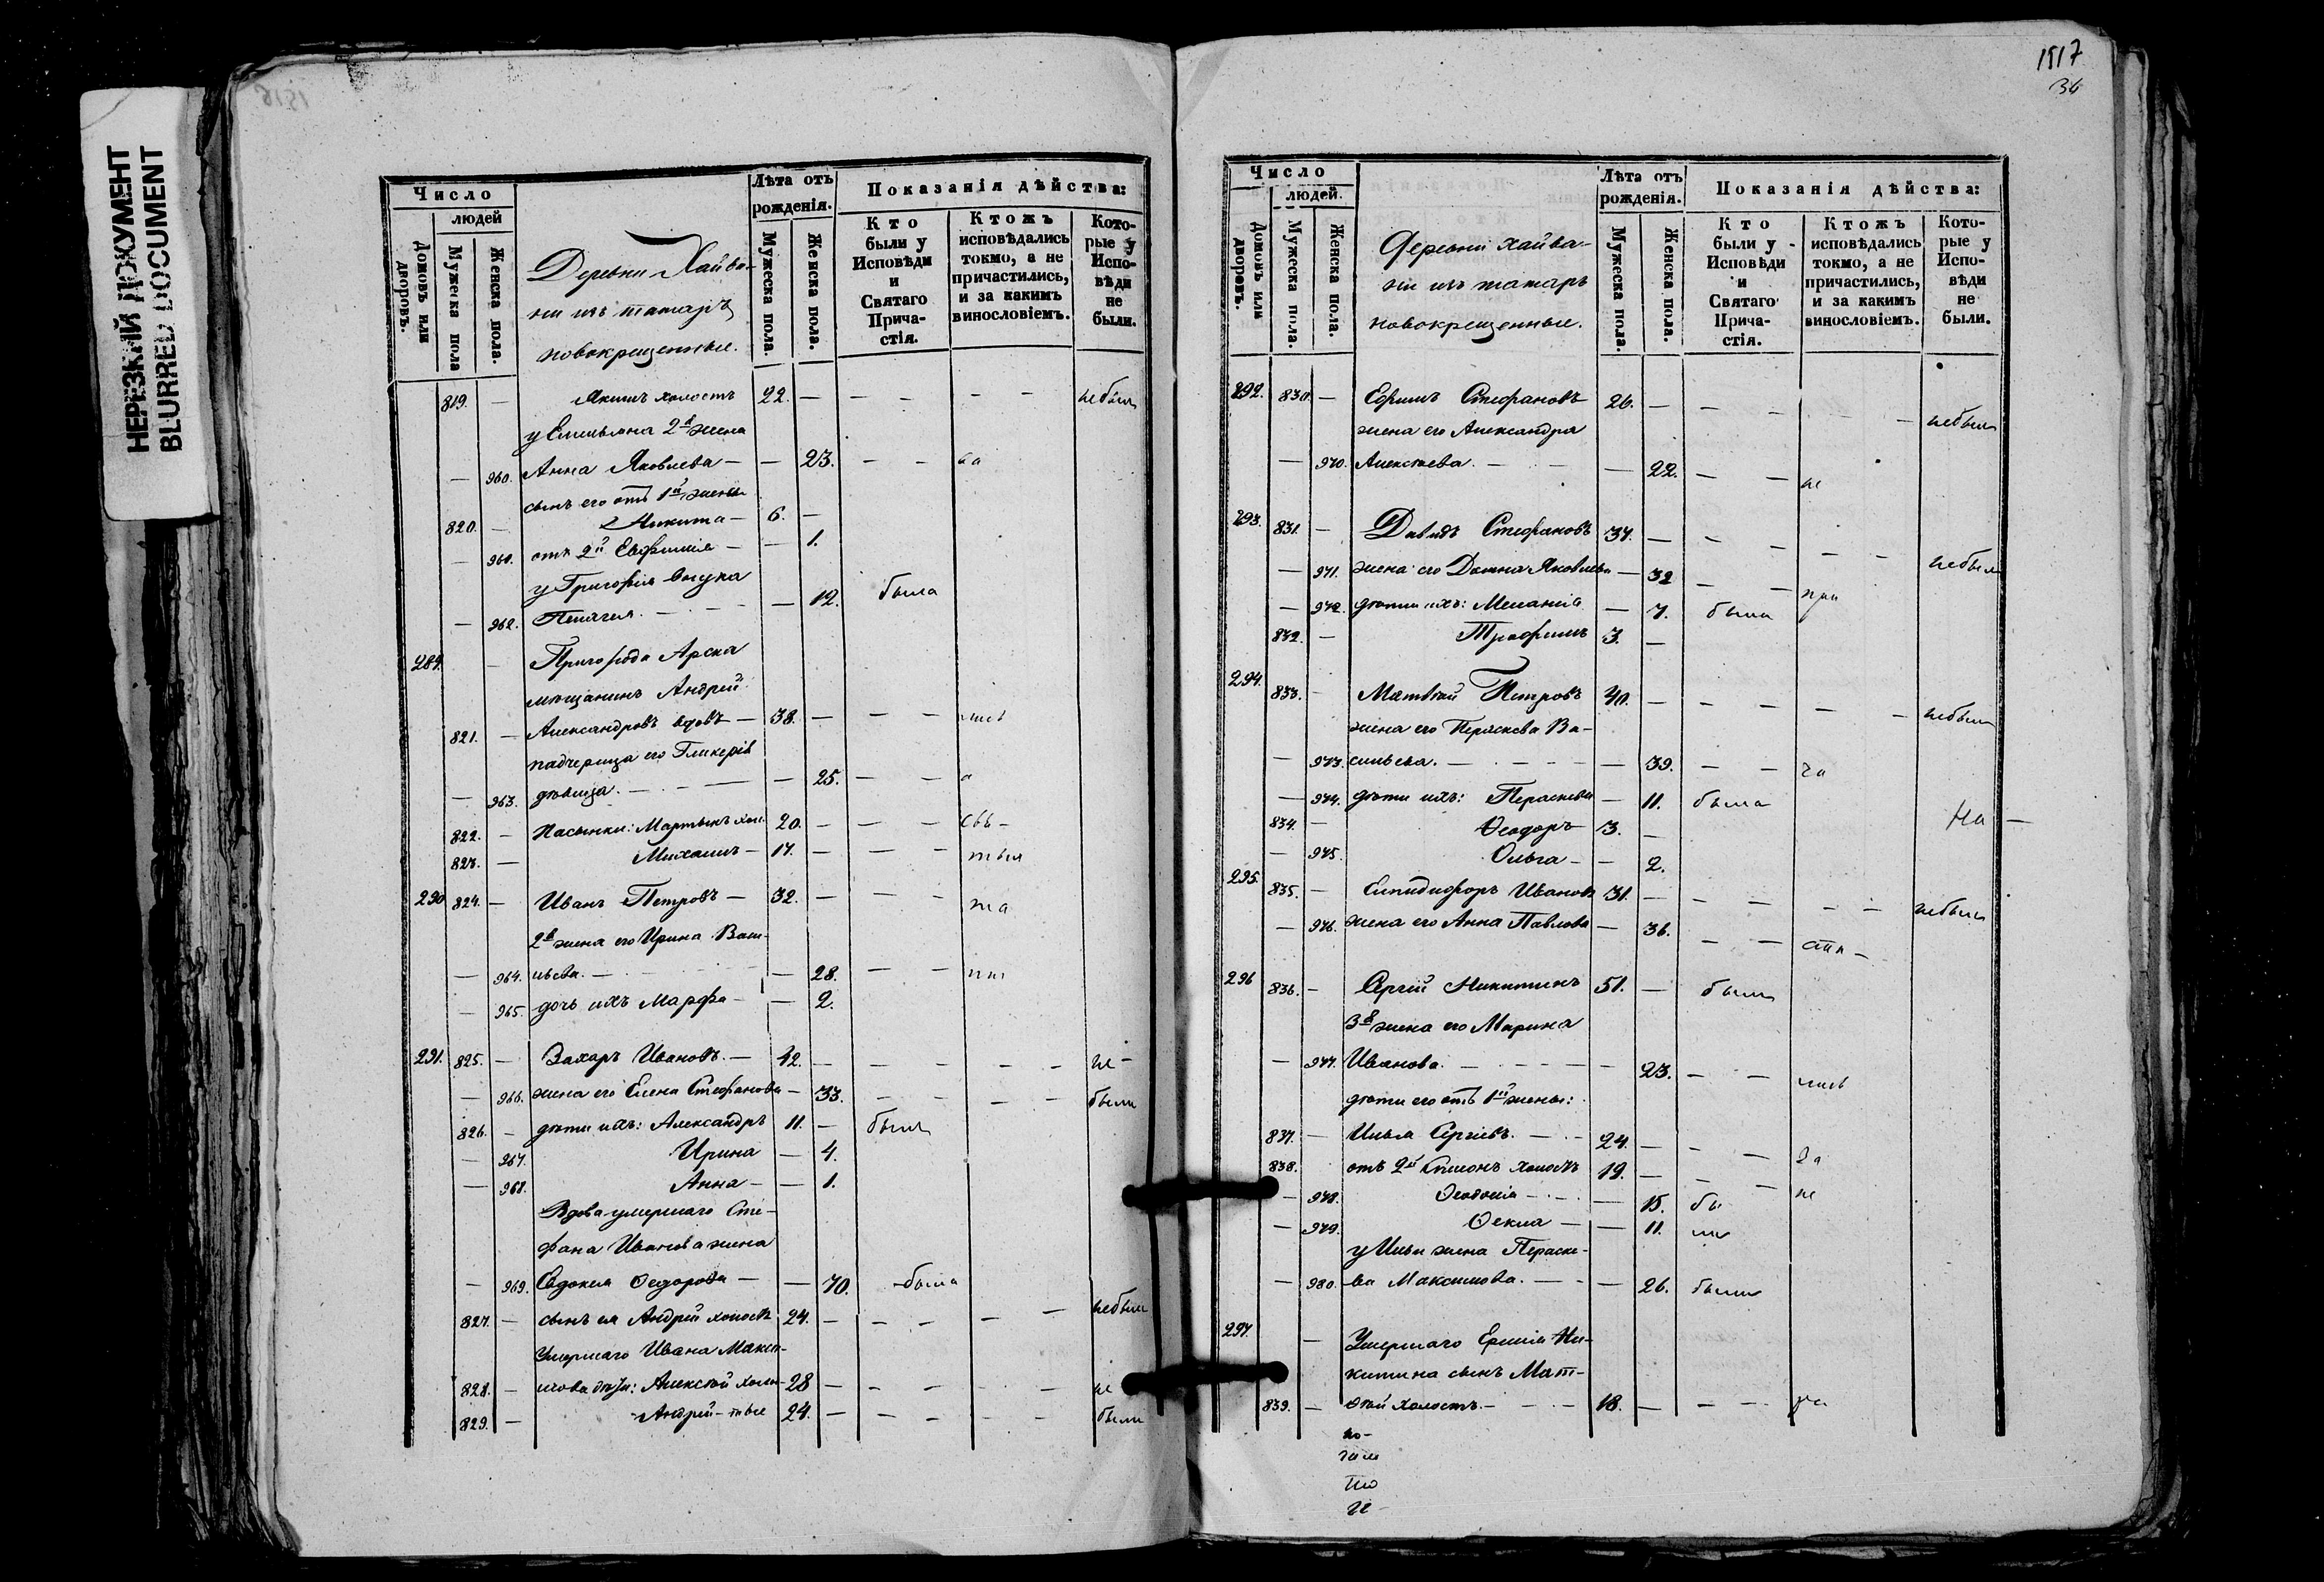 НЕРЕЗКИЙ ДОКУМЕНТ
BLURRED DOCUMENT
1517
36
Число
людей
Домовъ или дворовъ.
Мужеска пола
Женска пола.
Деревни Хайва-
ни изъ татаръ
новокрещенные.
Лѣта отъ
рожденія.
Мужеска пола.
Женска пола.
Показанія дѣйства:
Кто
были у
Исповѣди
и
Святаго
Прича-
стія.
Ктожъ
исповѣдались
токмо, а не
причастились,
и за какимъ
винословіемъ.
Кото-
рые у
Испо-
вѣди
не
были.
819. — холостъ 22. — — — — — небылъ
у Емельяна 2я жена
— 960. Анна Яковлева — — 23. — —
сынъ его отъ 1й жены
820. — Никита — 6. —
— 961. отъ 2й Евфимія — — 1.
у Григорія внука
— 962. Пелагея. — — 12. была
289. — Пригорода Арска
мѣщанинъ Андрей
821. — Александровъ вдовъ — 38. — — —
падчерица его Гликерія
— 963. дѣвица. — — 25. — —
822. — Пасынки: Мартынъ хол. 20. — — —
823. — Михаилъ — 17. — — —
290 824. — Иванъ Петровъ — 32. — —
2я жена его Ирина Васи-
— 964. льева. — — 28. — —
— 965. дочь ихъ Марфа — — 2.
291. 825. — Захаръ Ивановъ. — 42. — — — — — не-
— 966. жена его Елена Стефанова — 33. — — — — были
826. — дѣти ихъ: Александръ 11. — былъ
— 967. Ирина — 4.
— 968. Анна — — 1.
Вдова умершаго Сте-
фана Иванова жена
— 969. Евдокия Ѳедорова — — 70. была
827. — сынъ ея Андрей холостъ 24. — — — — — небылъ
Умершаго Ивана Макси-
828. — мова дѣти: Алексѣй холо- 28 — — — — не
829. — Андрей — стые 24. — — — — — были
Число
людей.
Домовъ или дворовъ.
Мужеска пола.
Женска пола.
Деревни Хайва-
ни изъ татаръ
новокрещенные.
Лѣта отъ
рожденія.
Мужеска пола.
Женска пола.
Показанія дѣйства:
Кто
были у
Исповѣди
и
Святаго
Прича-
стія.
Ктожъ
исповѣдались
токмо, а не
причастились,
и за какимъ
винословіемъ.
Кото-
рые у
Испо-
вѣди
не
были.
292. 830. — Ефимъ Стефановъ 26. — — — — небылъ
жена его Александра
— 970. Алексѣева. — — 22. — — не
293. 831. — Давидъ Стефановъ 37. — — — — — небылъ
— 971. жена его Домна Яковлева — 32 — — при
— 972. дѣти ихъ: Меланія — 7. была
832. — Трофимъ 3. —
294. 833. — Матвѣй Петровъ 40. — — — — — небылъ
жена его Параскева Ва-
— 973. сильева. — — 39. — — ча
— 974. дѣти ихъ: Параскева — 11. была
834. — Ѳеодоръ — 3. — На —
— 975. Ольга — — 2.
295. 835. — Елпидифоръ Ивановъ 31. — — — — — небылъ
— 976. жена его Анна Павлова — 36. — —
296 836. — Сергій Никитинъ 51. — былъ
3я жена его Марина
— 977. Иванова. — — 23. — —
дѣти его отъ 1й жены:
837. — Илья Сергіевъ. — 24. — — — за
838. отъ 2й Симеонъ холостъ 19. — — — не
— 978. Ѳеодосія — — 15. бы
— 979. Ѳекла — — 11. ли
у Ильи жена Параске-
— 980. ва Максимова. — — 26. была
297. — Умершаго Ермила Ни-
китина сынъ Мат-
839. — ѳей холостъ. — 18. — — —